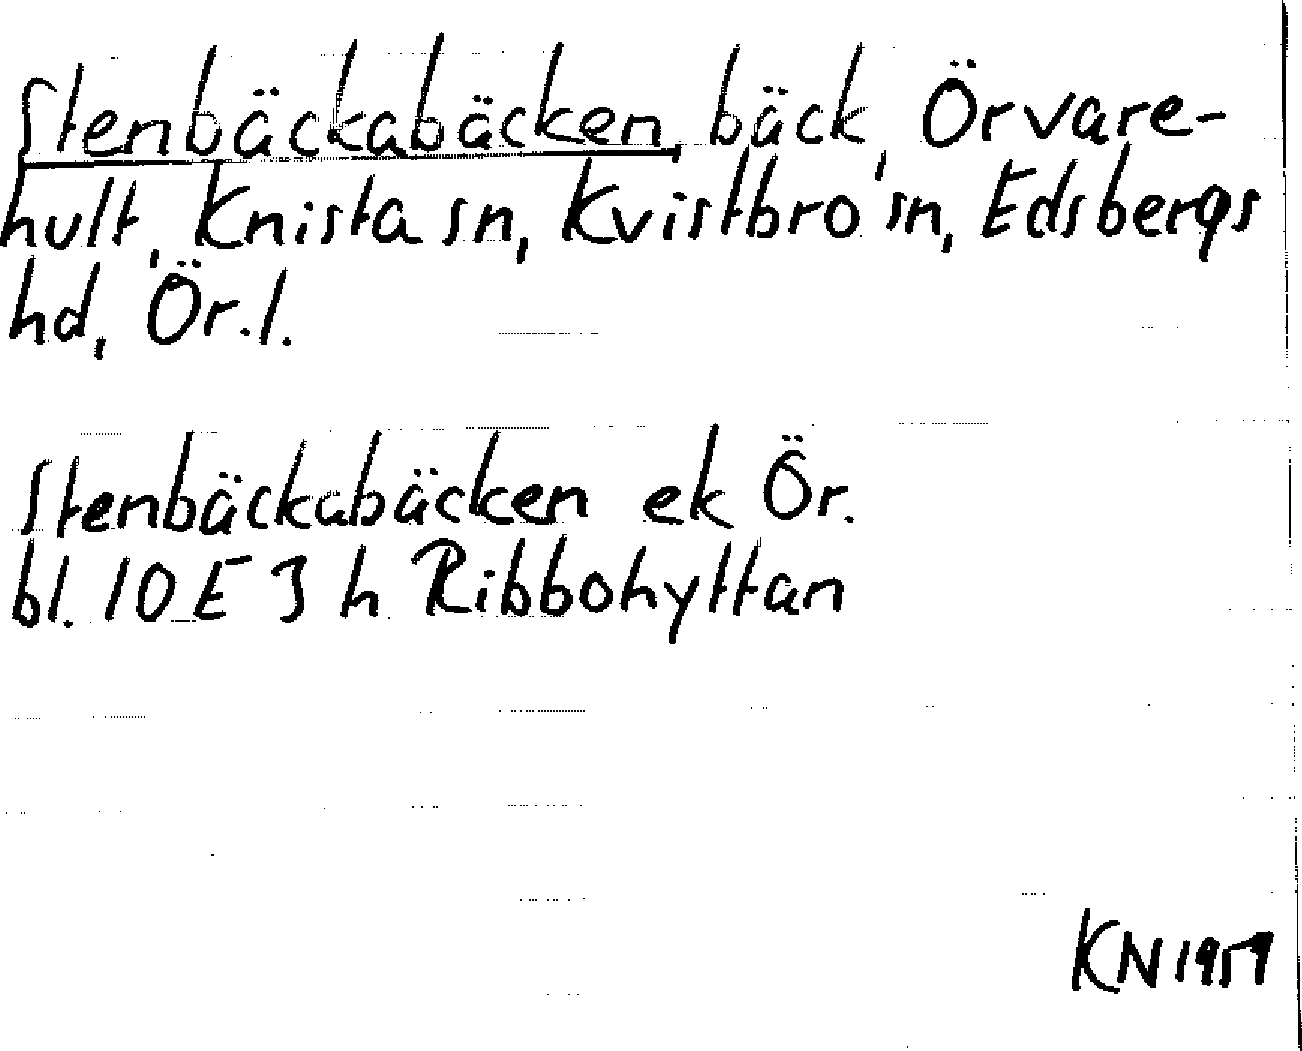 Stenbäckabäcken, bäck, Örvare-
hult, Knista sn, Kvistbro sn, Edsbergs
hd, Ör.l.
Stenbäckabäcken ek Ör.
bl. 10 E 3 h Ribbohyttan
KN 1959